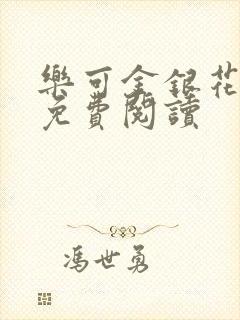 樂可金銀花
免費閱讀
馮世勇